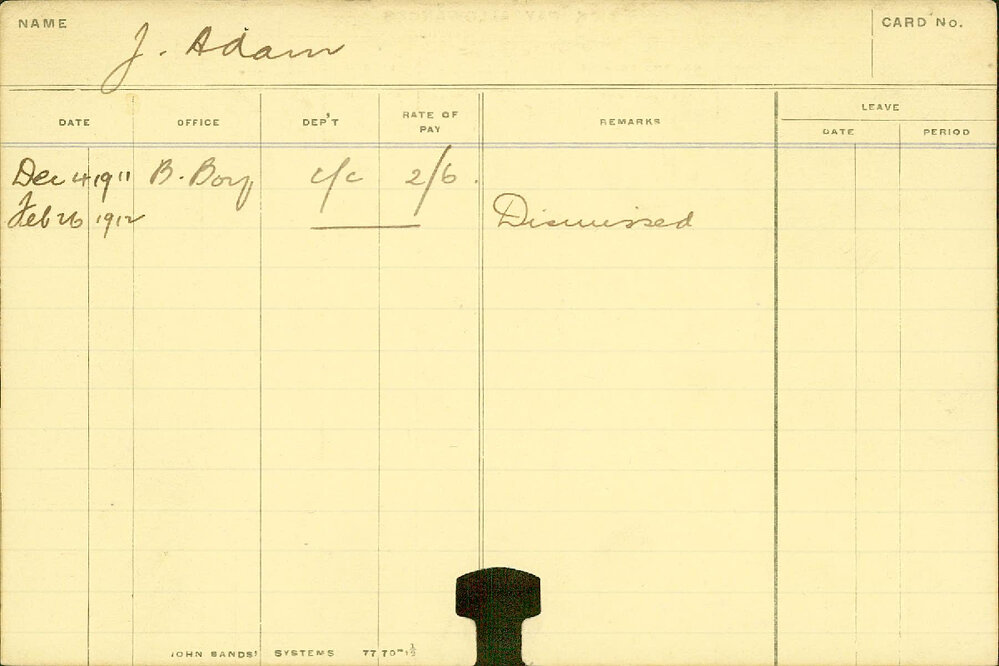 NAME J. Adam CARD No.
DATE OFFICE DEP'T RATE OF PAY REMARKS LEAVE
DATE PERIOD
Dec 4 1911 B. Boy c/c 2/6.
Feb 26 1912 Dismissed
JOHN SANDS' SYSTEMS